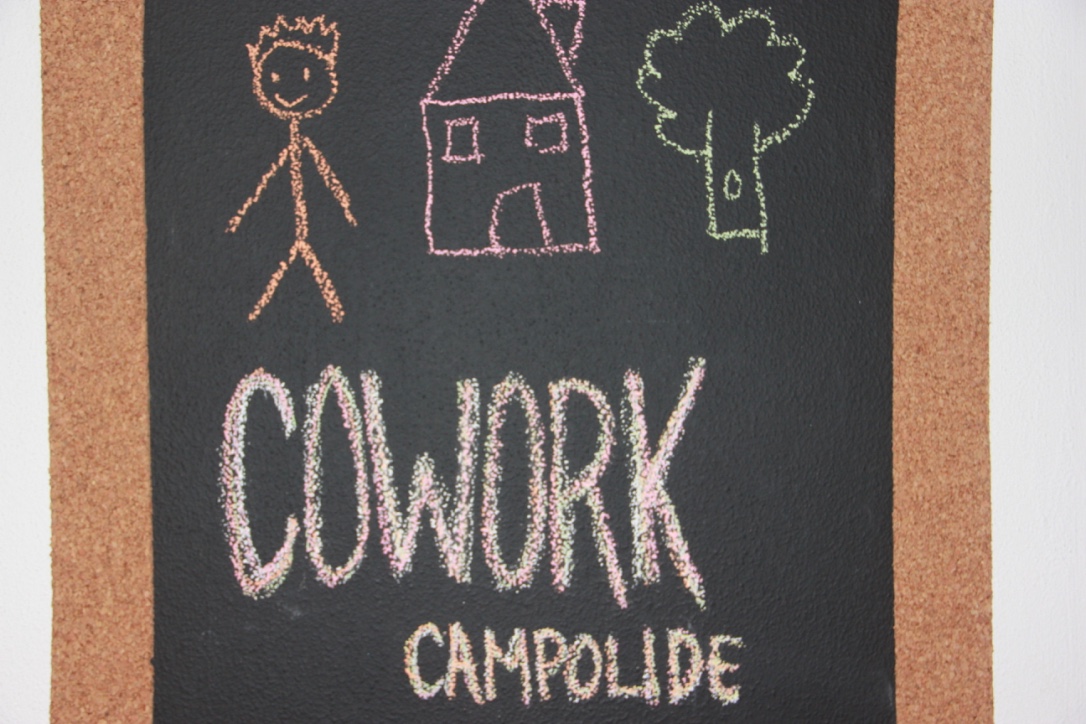 COWORK
CAMPOLIDE